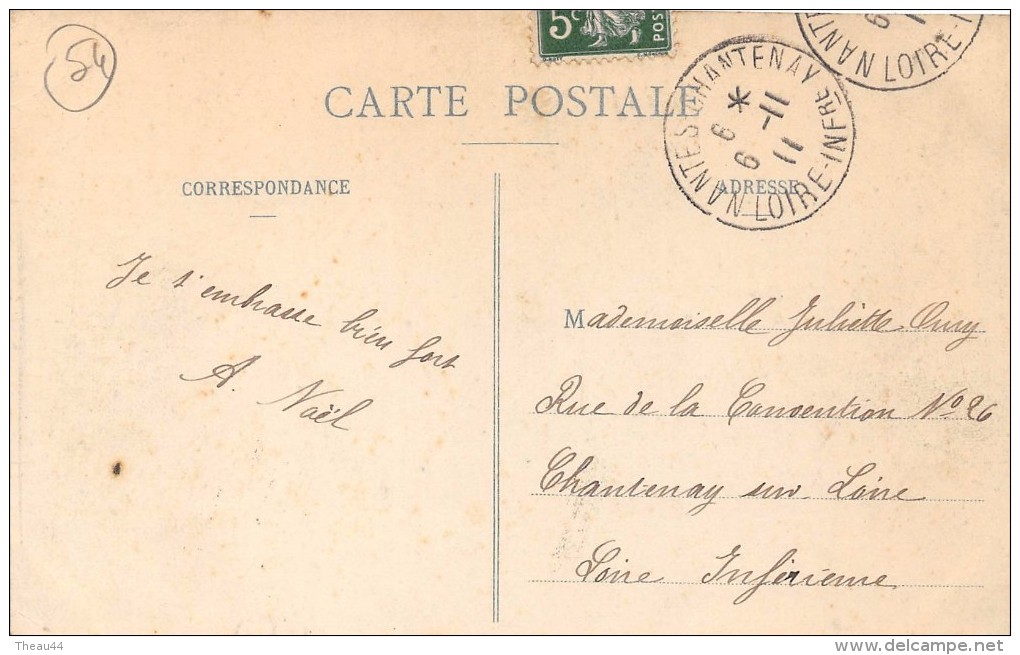 54
5c POS
NANTES LOIRE-I
6
11
CARTE POSTALE
NANTES CHANTENAY
LOIRE-INFRE
* 6 6 9 -11 11
CORRESPONDANCE
ADRESSE
Je t'embrasse bien fort
A. Noël
Mademoiselle Juliette Oury
Rue de la Convention No 26
Chantenay sur Loire
Loire Inférieure
Theau44
www.delcampe.net